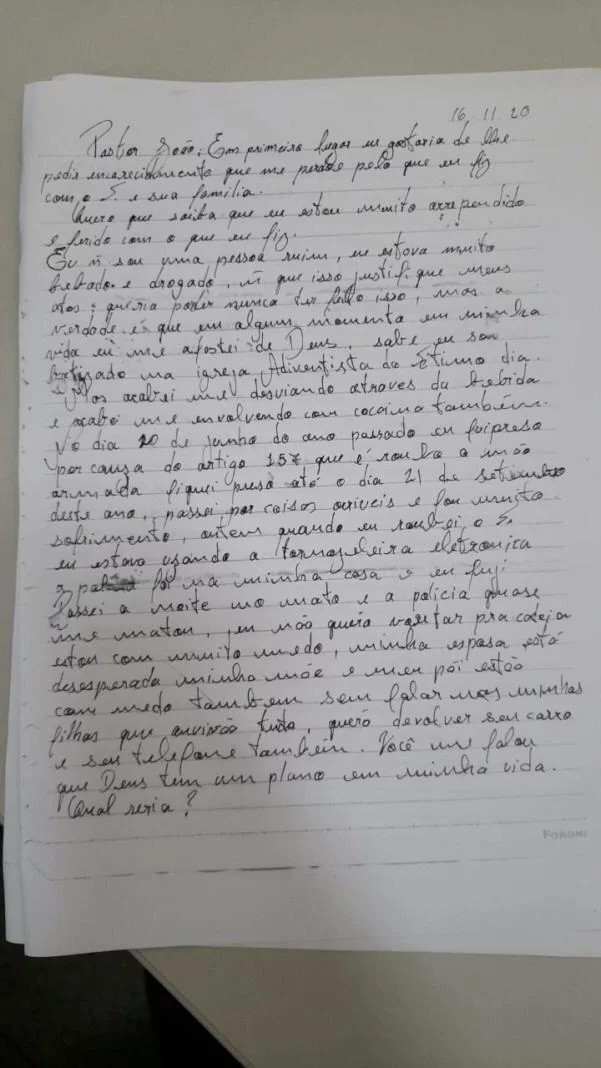 16 11 20
Pastor João, Em primeiro lugar eu gostaria de lhe
pedir encarecidamente que me perdoe pelo que eu fiz
com o S. e sua familia.
Quero que saiba que eu estou muito arrependido
e ferido com o que eu fiz.
Eu ñ sou uma pessoa ruim, eu estava muito
bebado e drogado, ñ que isso justifique meus
atos; queria poder nunca ter feito isso, mas a
verdade é que em algum momento em minha
vida eu me afastei de Deus, sabe eu sou
batizado na igreja Adventista do Sétimo dia.
Mas acabei me desviando atraves da bebida
e acabei me envolvendo com cocaina também.
No dia 20 de junho do ano passado eu fui preso
por causa do artigo 157 que é roubo a mão
armada fiquei preso até o dia 21 de setembro
deste ano, passei por coisas orriveis e fou muito
sofrimento, ontem quando eu roubei o S.
eu estava usando a tornozeleira eletronica
foi na minha casa e eu fugi
Passei a noite no mato e a policia quase
me matou, eu não quero voltar pra cadeia
estou com muito medo, minha esposa está
desesperada minha mãe e meu pai estão
com medo tambem sem falar nas minhas
filhas que ouvirão tudo, quero devolver seu carro
e seu telefone também. Você me falou
que Deus tem um plano em minha vida.
Qual seria?
FORONI